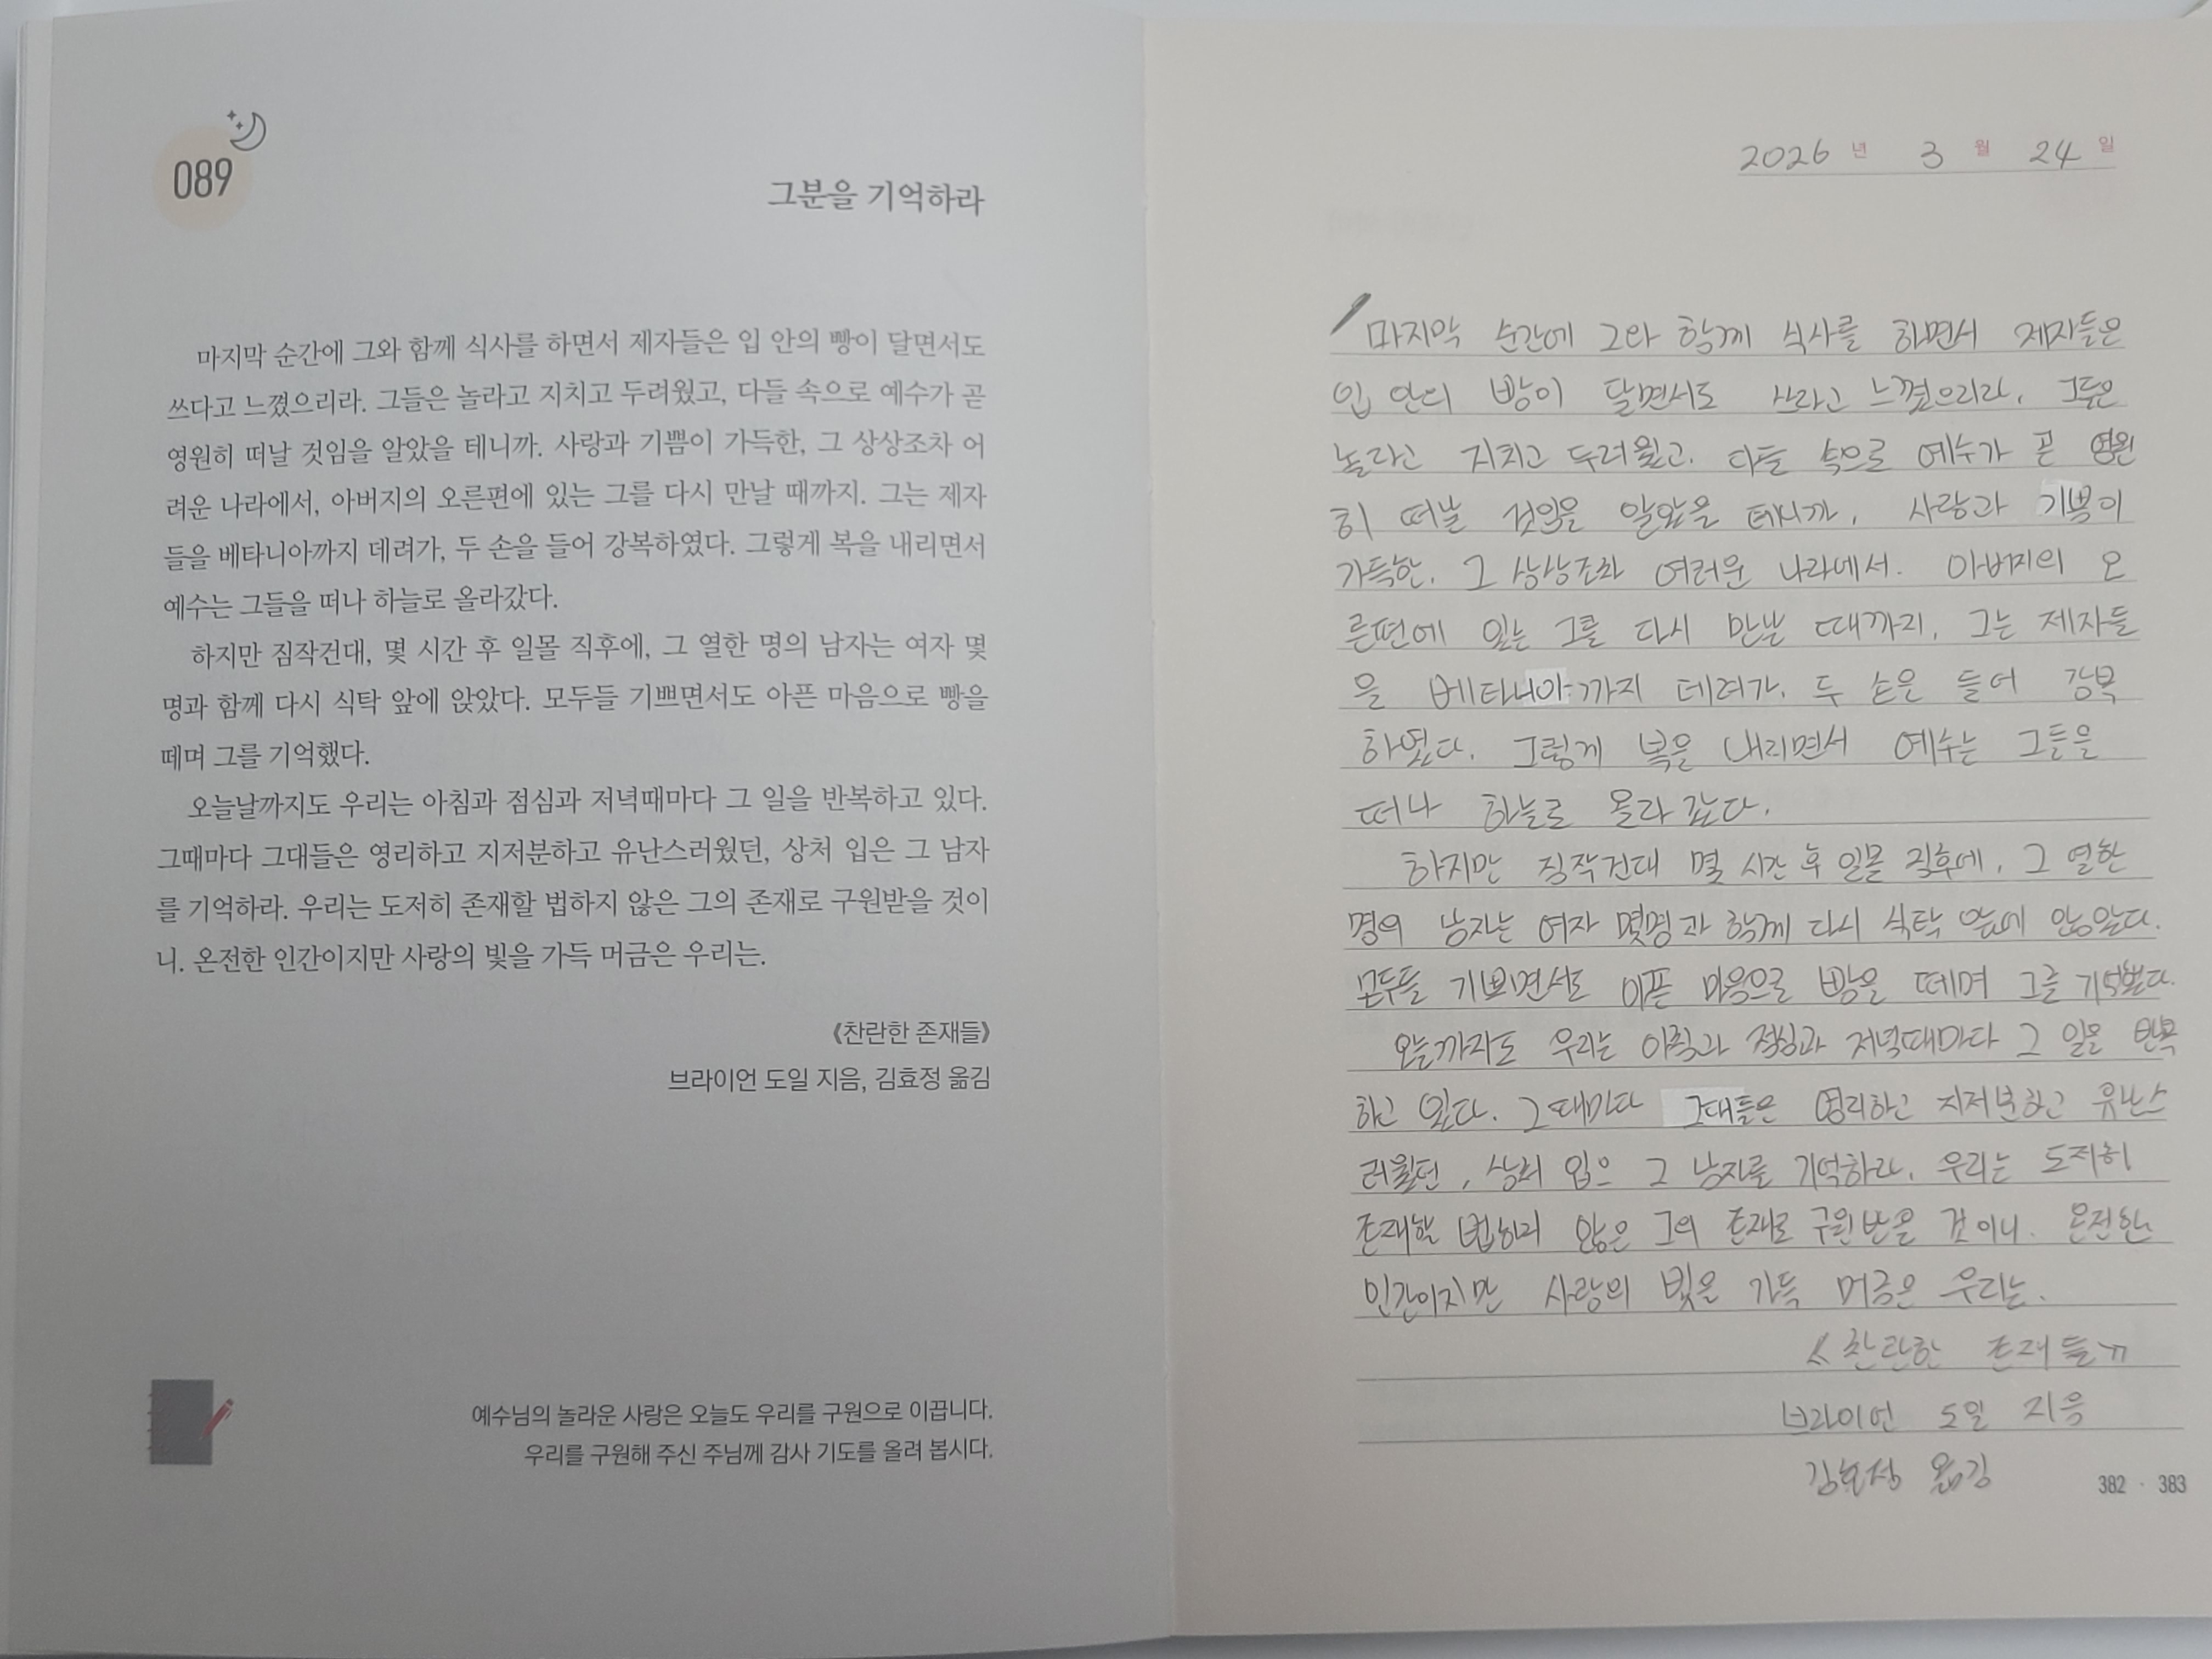 089
그분을 기억하라
마지막 순간에 그와 함께 식사를 하면서 제자들은 입 안의 빵이 달면서도
쓰다고 느꼈으리라. 그들은 놀라고 지치고 두려웠고, 다들 속으로 예수가 곧
영원히 떠날 것임을 알았을 테니까. 사랑과 기쁨이 가득한, 그 상상조차 어
려운 나라에서, 아버지의 오른편에 있는 그를 다시 만날 때까지. 그는 제자
들을 베타니아까지 데려가, 두 손을 들어 강복하였다. 그렇게 복을 내리면서
예수는 그들을 떠나 하늘로 올라갔다.
하지만 짐작건대, 몇 시간 후 일몰 직후에, 그 열한 명의 남자는 여자 몇
명과 함께 다시 식탁 앞에 앉았다. 모두들 기쁘면서도 아픈 마음으로 빵을
떼며 그를 기억했다.
오늘날까지도 우리는 아침과 점심과 저녁때마다 그 일을 반복하고 있다.
그때마다 그대들은 영리하고 지저분하고 유난스러웠던, 상처 입은 그 남자
를 기억하라. 우리는 도저히 존재할 법하지 않은 그의 존재로 구원받을 것이
니. 온전한 인간이지만 사랑의 빛을 가득 머금은 우리는.
《찬란한 존재들》
브라이언 도일 지음, 김효정 옮김
예수님의 놀라운 사랑은 오늘도 우리를 구원으로 이끕니다.
우리를 구원해 주신 주님께 감사 기도를 올려 봅시다.
2026 년 3 월 24 일
마지막 순간에 그와 함께 식사를 하면서 제자들은
입 안의 빵이 달면서도 쓰라고 느꼈으리라. 그들은
놀라고 지치고 두려웠고. 다들 속으로 예수가 곧 영원
히 떠날 것임을 알았을 테니까. 사랑과 기쁨이
가득한. 그 상상조차 어려운 나라에서. 아버지의 오
른편에 있는 그를 다시 만날 때까지. 그는 제자들
을 베타니아까지 데려가. 두 손을 들어 강복
하였다. 그렇게 복을 내리면서 예수는 그들을
떠나 하늘로 올라갔다.
하지만 짐작건대 몇 시간 후 일몰 직후에, 그 열한
명의 남자는 여자 몇명과 함께 다시 식탁 앞에 앉았다.
모두들 기쁘면서도 아픈 마음으로 빵을 떼며 그를 기억했다.
오늘까지도 우리는 아침과 점심과 저녁때마다 그 일을 반복
하고 있다. 그때마다 그대들은 영리하고 지저분하고 유난스
러웠던, 상처 입은 그 남자를 기억하라. 우리는 도저히
존재할 법하지 않은 그의 존재로 구원받을 것이니. 온전한
인간이지만 사랑의 빛을 가득 머금은 우리는.
《찬란한 존재들》
브라이언 도일 지음
김효정 옮김
382 · 383